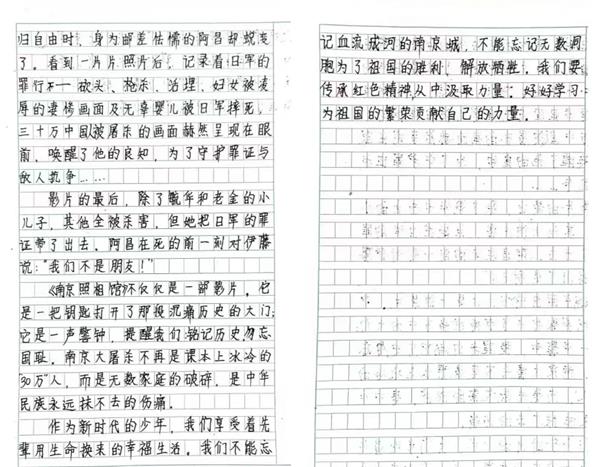 归自由时，身为邮差怯懦的阿昌却蜕变
了。看到一片片照片后，记录着日军的
罪行——砍头、枪杀、活埋、妇女被凌
辱的凄惨画面及无辜婴儿被日军摔死，
三十万中国被屠杀的画面赫然呈现在眼
前，唤醒了他的良知，为了守护罪证与
敌人抗争……
影片的最后，除了毓秀和老金的小
儿子，其他全被杀害，但她把日军的罪
证带了出去。阿昌在死的前一刻对伊藤
说："我们不是朋友！"
《南京照相馆》不仅仅是一部影片，它
是一把钥匙打开了那段沉痛历史的大门；
它是一声警钟，提醒我们铭记历史勿忘
国耻。南京大屠杀不再是课本上冰冷的
"30万"人，而是无数家庭的破碎，是中华
民族永远抹不去的伤痛。
作为新时代的少年，我们享受着先
辈用生命换来的幸福生活。我们不能忘
记血流成河的南京城，不能忘记无数同
胞为了祖国的胜利、解放牺牲。我们要
传承红色精神，从中汲取力量；好好学习
为祖国的繁荣贡献自己的力量。